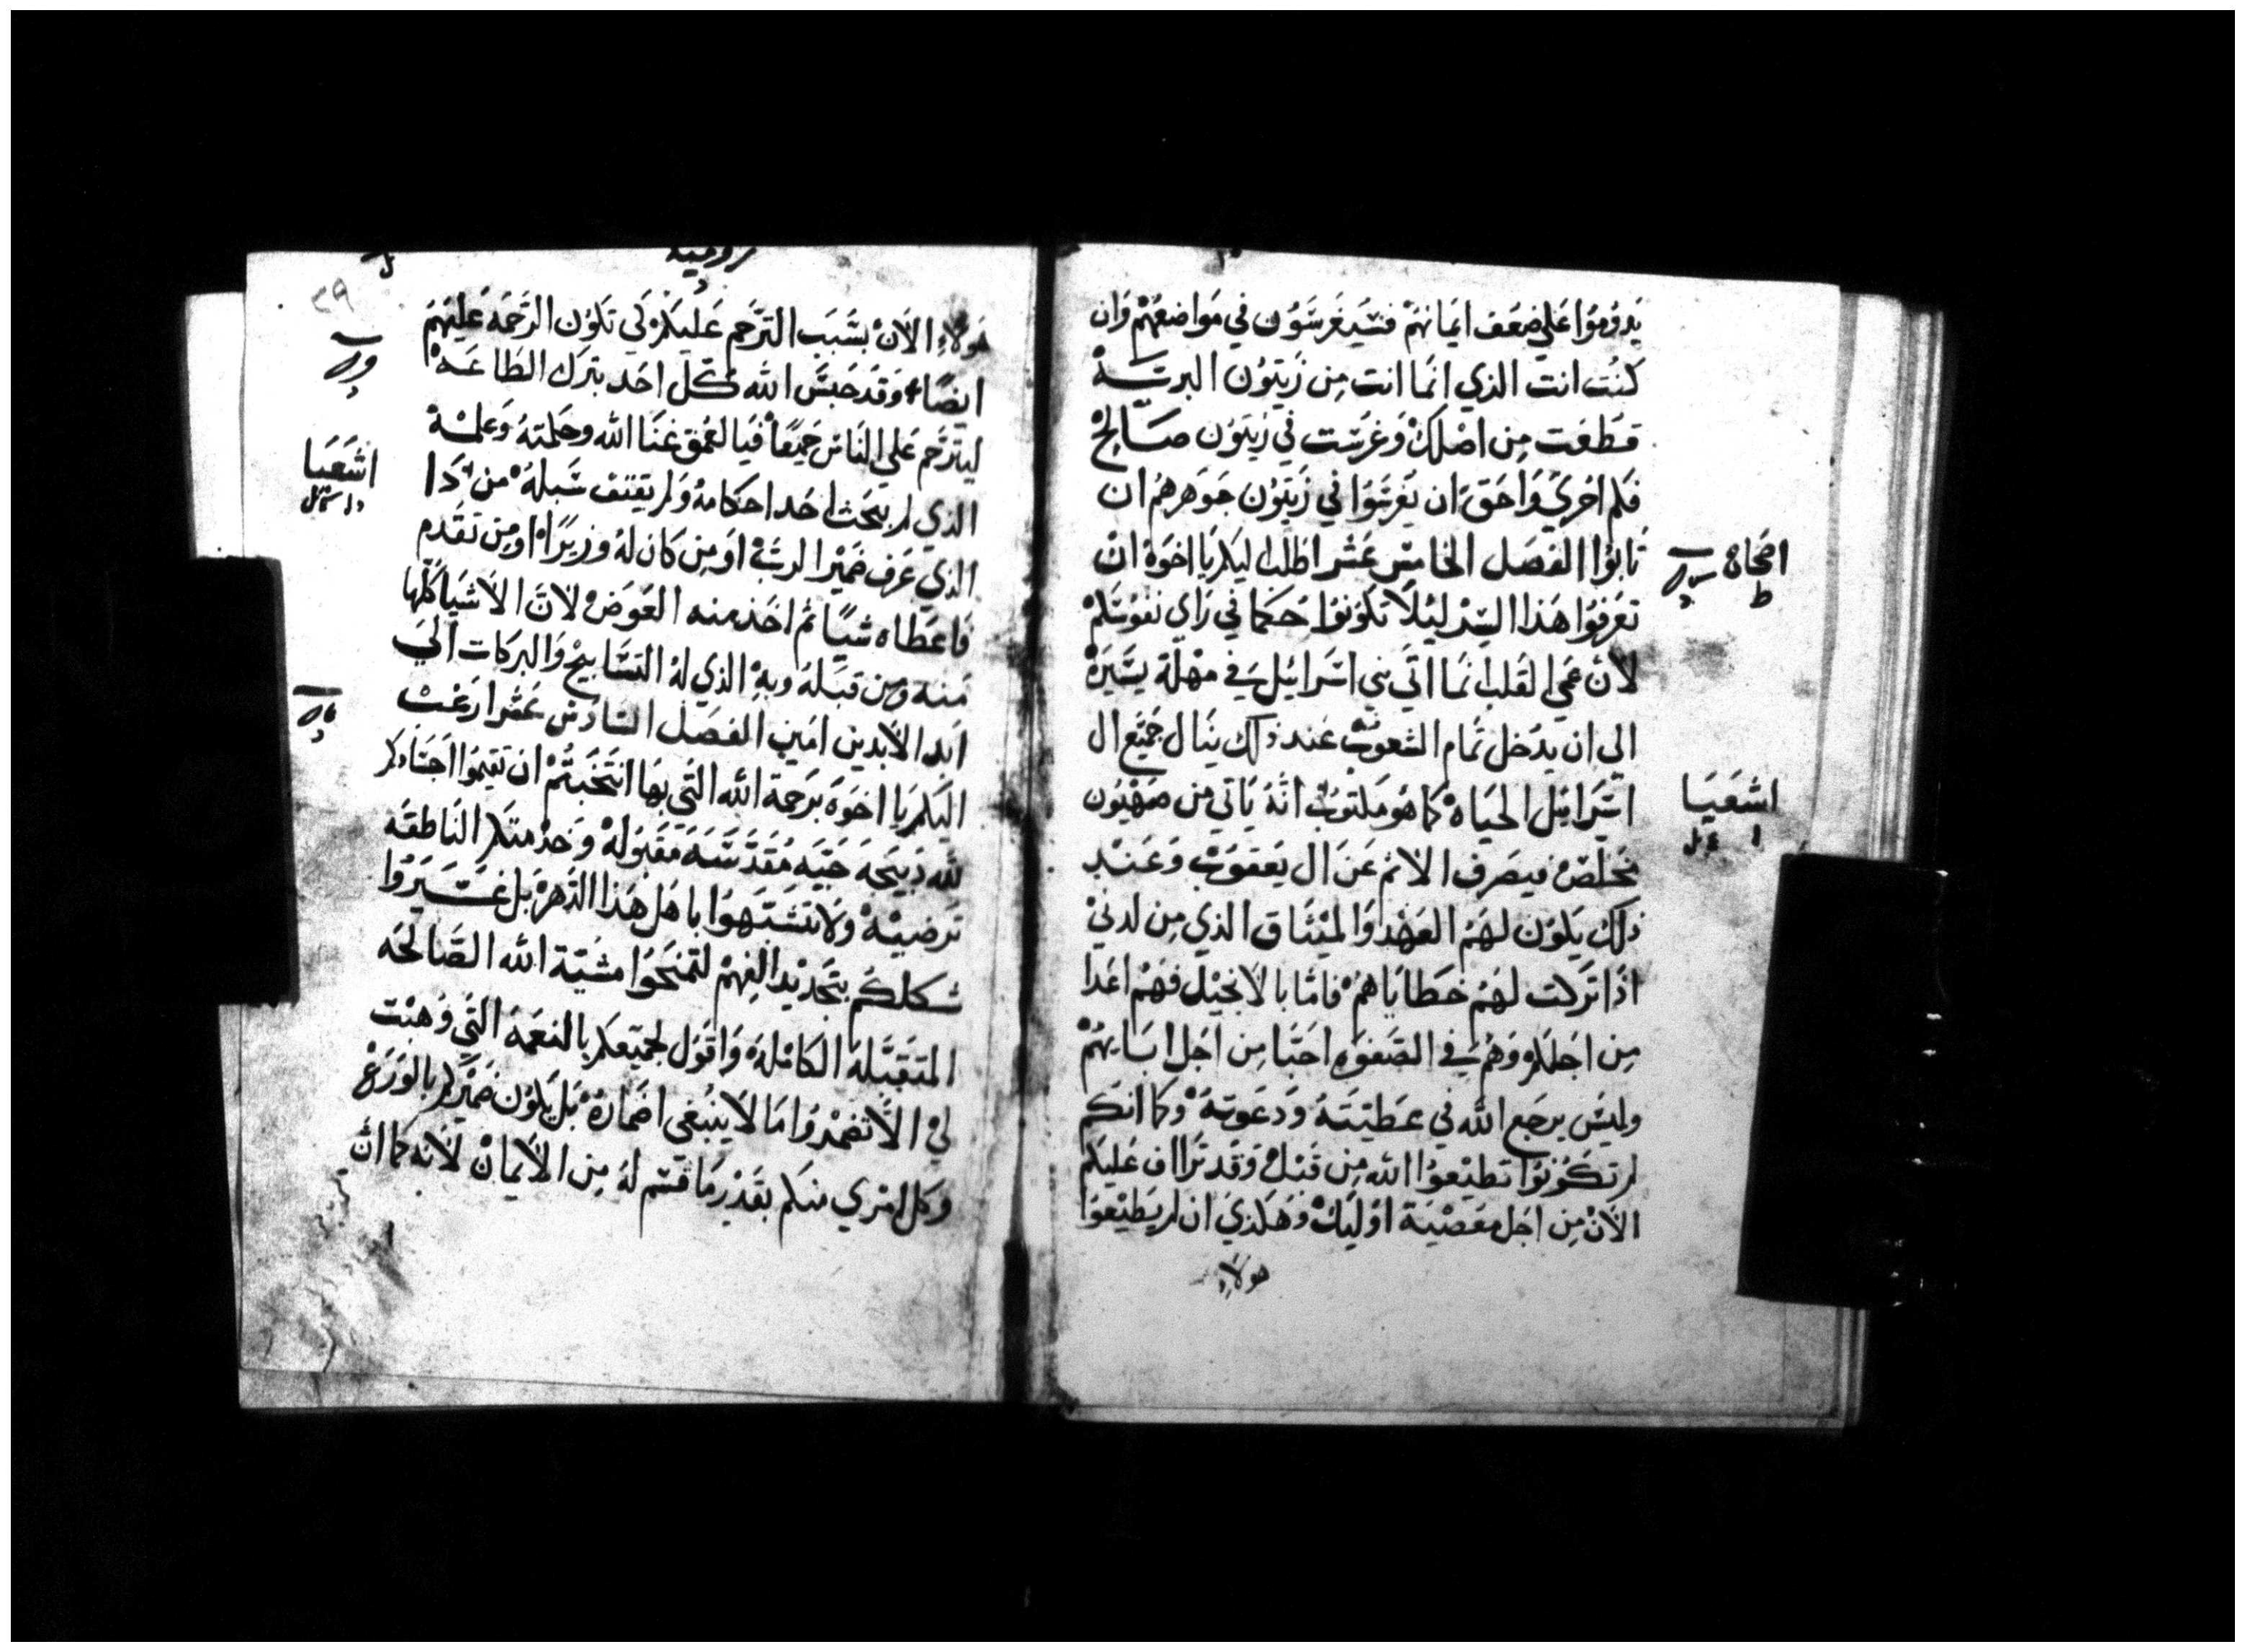 يَدوُمُوا عَلي ضعَف ايمانهُم فسَيغرَسَوُن في مَواضعهُم وَان
كنُت انت الذي انمَا انت مِن زَيتوُن البريَـــة
قطعَت مِن اصْلكْ وَغرَسَت في زيتَوُن صَالح
فكم احْريَ وَاحَق ان يغَرسَوُا في زَيتَوُن جَوهرهُم ان
تابوُا الفصَل الخامسَ عَشر اطلَب اليكم يَا اخوَة انْ
تعَرفوُا هَذا السِر ليُلا تكوُنوُا حُكما في رَاي نفوُسَكمْ
لانَ عمَي القلب انمَا اتيَ بني اسَرائيل في مهْلَة يسَيرَة
الى ان يدُخل تمام الشعوُبْ عَند ذلك ينَال جَميَع ال
اسَرائيل الحيَاة كما هوُ مَكتوُبْ انهُ يَاتي من صهيُون
مخلصْ فيصَرف الاثم عَن ال يعَقوُبْ وَعَنـد
ذلك يَكوُن لهَمُ العَهْد وَالميْثاق الذي مِن لدنيْ
اذَا تَركت لهَمُ خطايَاهمُ فامَا بالانجيْل فهَمُ اعَدا
مِن اجَلكم وَهمُ في الصَفوَه احَبا مِن اجَل ابَايهُمْ
وليسَ يرجَع الله في عَطيَتهُ وَدعَوتهُ وكما انكمَ
لم تكوُنوُا تطيْعوُا الله مِن قبَلْ وَقد تَرااف عَليكمَ
الانْ مِن اجَل معَصْيَة اوُليكْ وَهَكذيَ ان لم يطيْعوُا
هولاءِ
اصحاح
ط
اشعَيَا
روميه
٣٩
هَولاءِ الاَنْ بسَبَب التَرحَم عَليكم كي تكوُن الرَحمَه عَليهَم
ايضًا وَقد حَبسَ الله كل احَد بترك الطَاعَـه
ليترَحَم عَلي النَاس جَميعَاً فيَا لعُمْق غنَا الله وحكمتهُ وَعلمـهْ
الذي لم يبحَث احَد احَكامهُ وَلم يقتف سَبلهُ من ذَا
الذي عَرف ضميْر الربْ اوَ مِن كان لهُ وزيرَا او مِن تقدم
فاعَطاه شيًا ثم اخَذ منه العَوضْ لانَ الاشيَا كلها
منه وَمِن قبَله وبهِ الذي لهُ التسَابيحْ وَالبركات الىَ
ابَد الابدين امَين الفصَل السَادسَ عَشر ارغبْ
اليكم يَا اخوَه برَحمة الله التي بهَا انتَخَبتُمْ ان تقيموُا اجسَادكم
لله ذَبيحَه حَيَه مُقدَسَه مَقبوُلهْ وَخدْمتكم الناطقه
تَرضيْه وَلا تتشَبهَوُا باهَل هَذا الدَهرْ بَل غيَـروُا
شكلكُم بتجَديْد الفِهمْ لتمنَحَوُا مشيَة الله الصَالحَه
المتقبَلة الكامْلهْ وَاقوُل لجميَعكم بالنعمَة التَي وُهبْت
ليْ الا تضمْروُا مَا لا ينبُغي اضَمارهُ بَل يكوُن ضميْركم بالوَرَعْ
وكل امري منكم بقدَر مَا قسَم لهُ مِن الايْمانْ لانه كما انَ
اشعَيَا